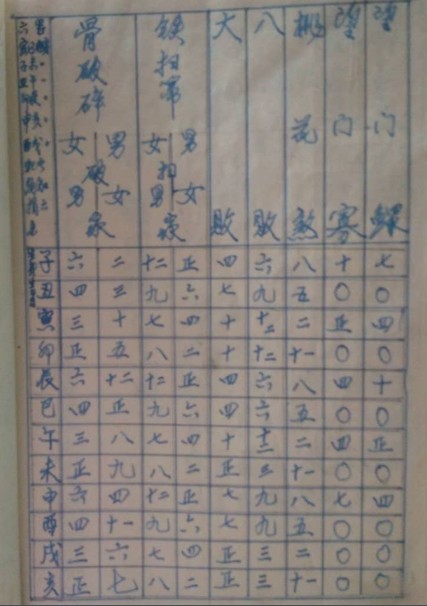 骨破碎 铁扫帚 大败 八败 桃花煞 望门寡 望门鳏
女破男家 男破女家 女扫男家 男扫女家
子 六 二 十二 正 四 六 八 十 七
丑 四 三 九 六 七 九 五 〇 〇
寅 三 十 七 四 十 十二 二 正 四
卯 正 五 八 二 十 十二 十一 〇 〇
辰 六 十二 十二 正 四 六 八 四 十
巳 四 正 九 六 四 六 五 〇 〇
午 三 八 七 四 十 十二 二 四 正
未 正 九 八 二 正 三 十一 〇 〇
申 六 四 十二 正 七 九 八 七 四
酉 四 十一 九 六 七 九 五 〇 〇
戌 三 六 七 四 正 三 二 〇 〇
亥 正 七 八 二 正 三 十一 〇 〇